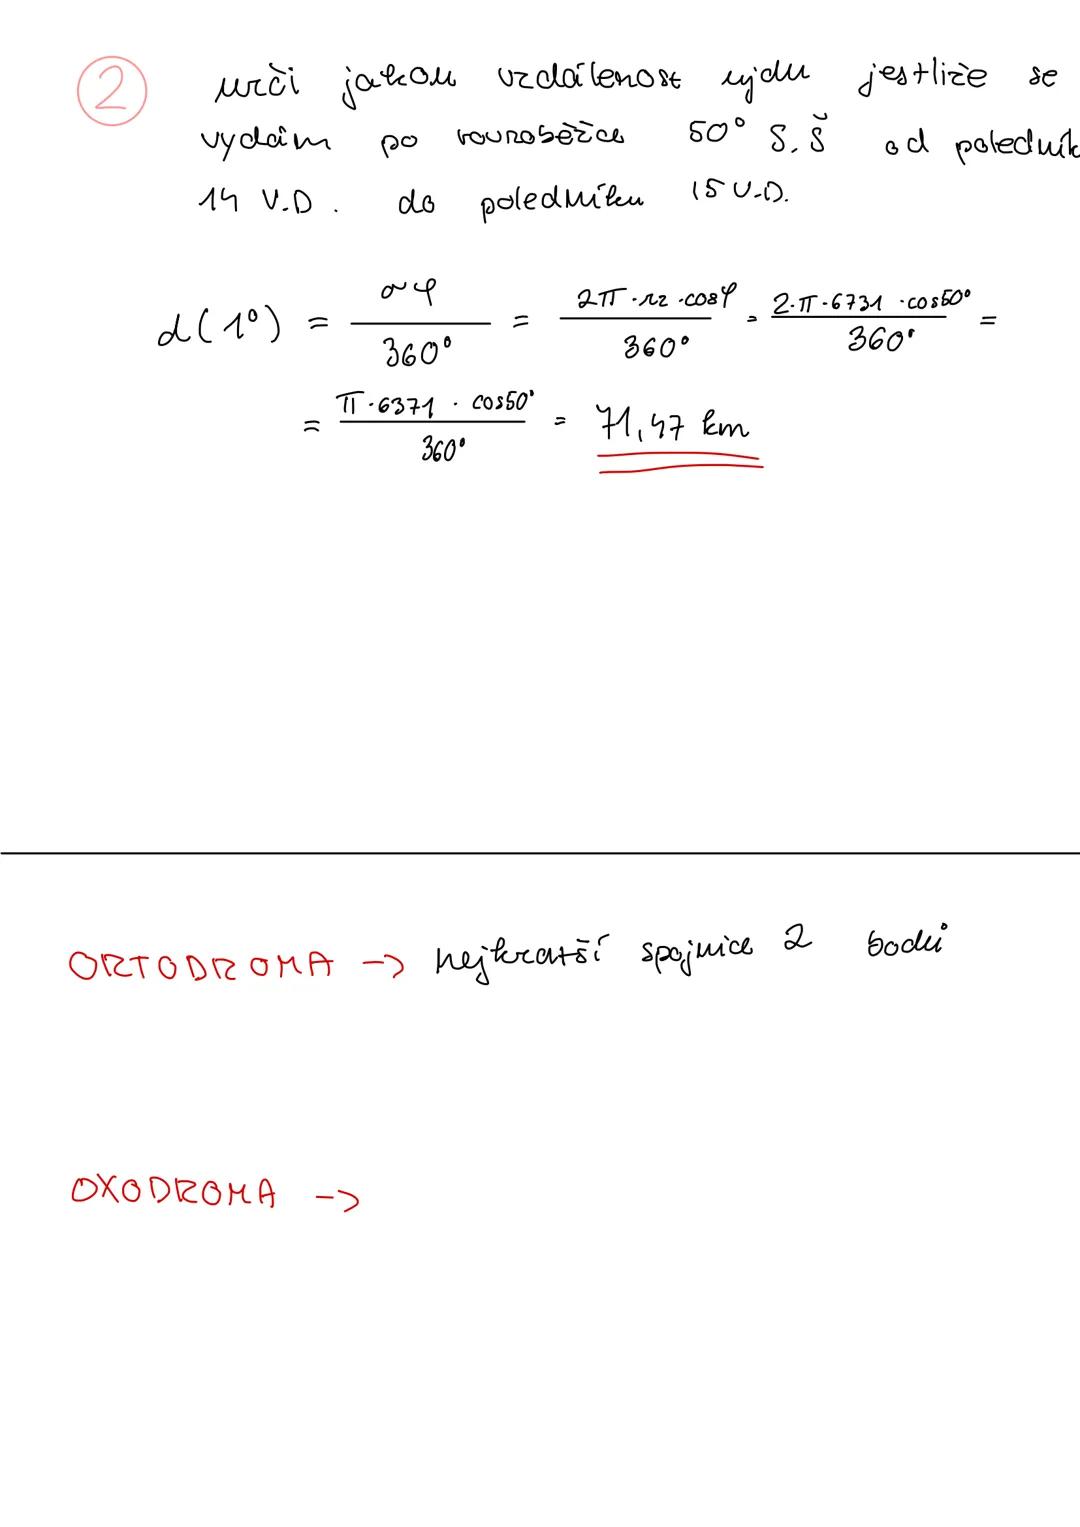 2 urči jakou vzdálenost ujdu jestliže se
vydám po rovnoběžce 50° S.Š od poledník
14 V.D. do poledníku 15 V.D.
d(1°) = oφ / 360° = 2π·rz·cosφ / 360° = 2·π·6731·cos50° / 360° =
= π·6371·cos50° / 360° = 71,47 km
ORTODROMA -> nejkratší spojnice 2 bodů
OXODROMA ->